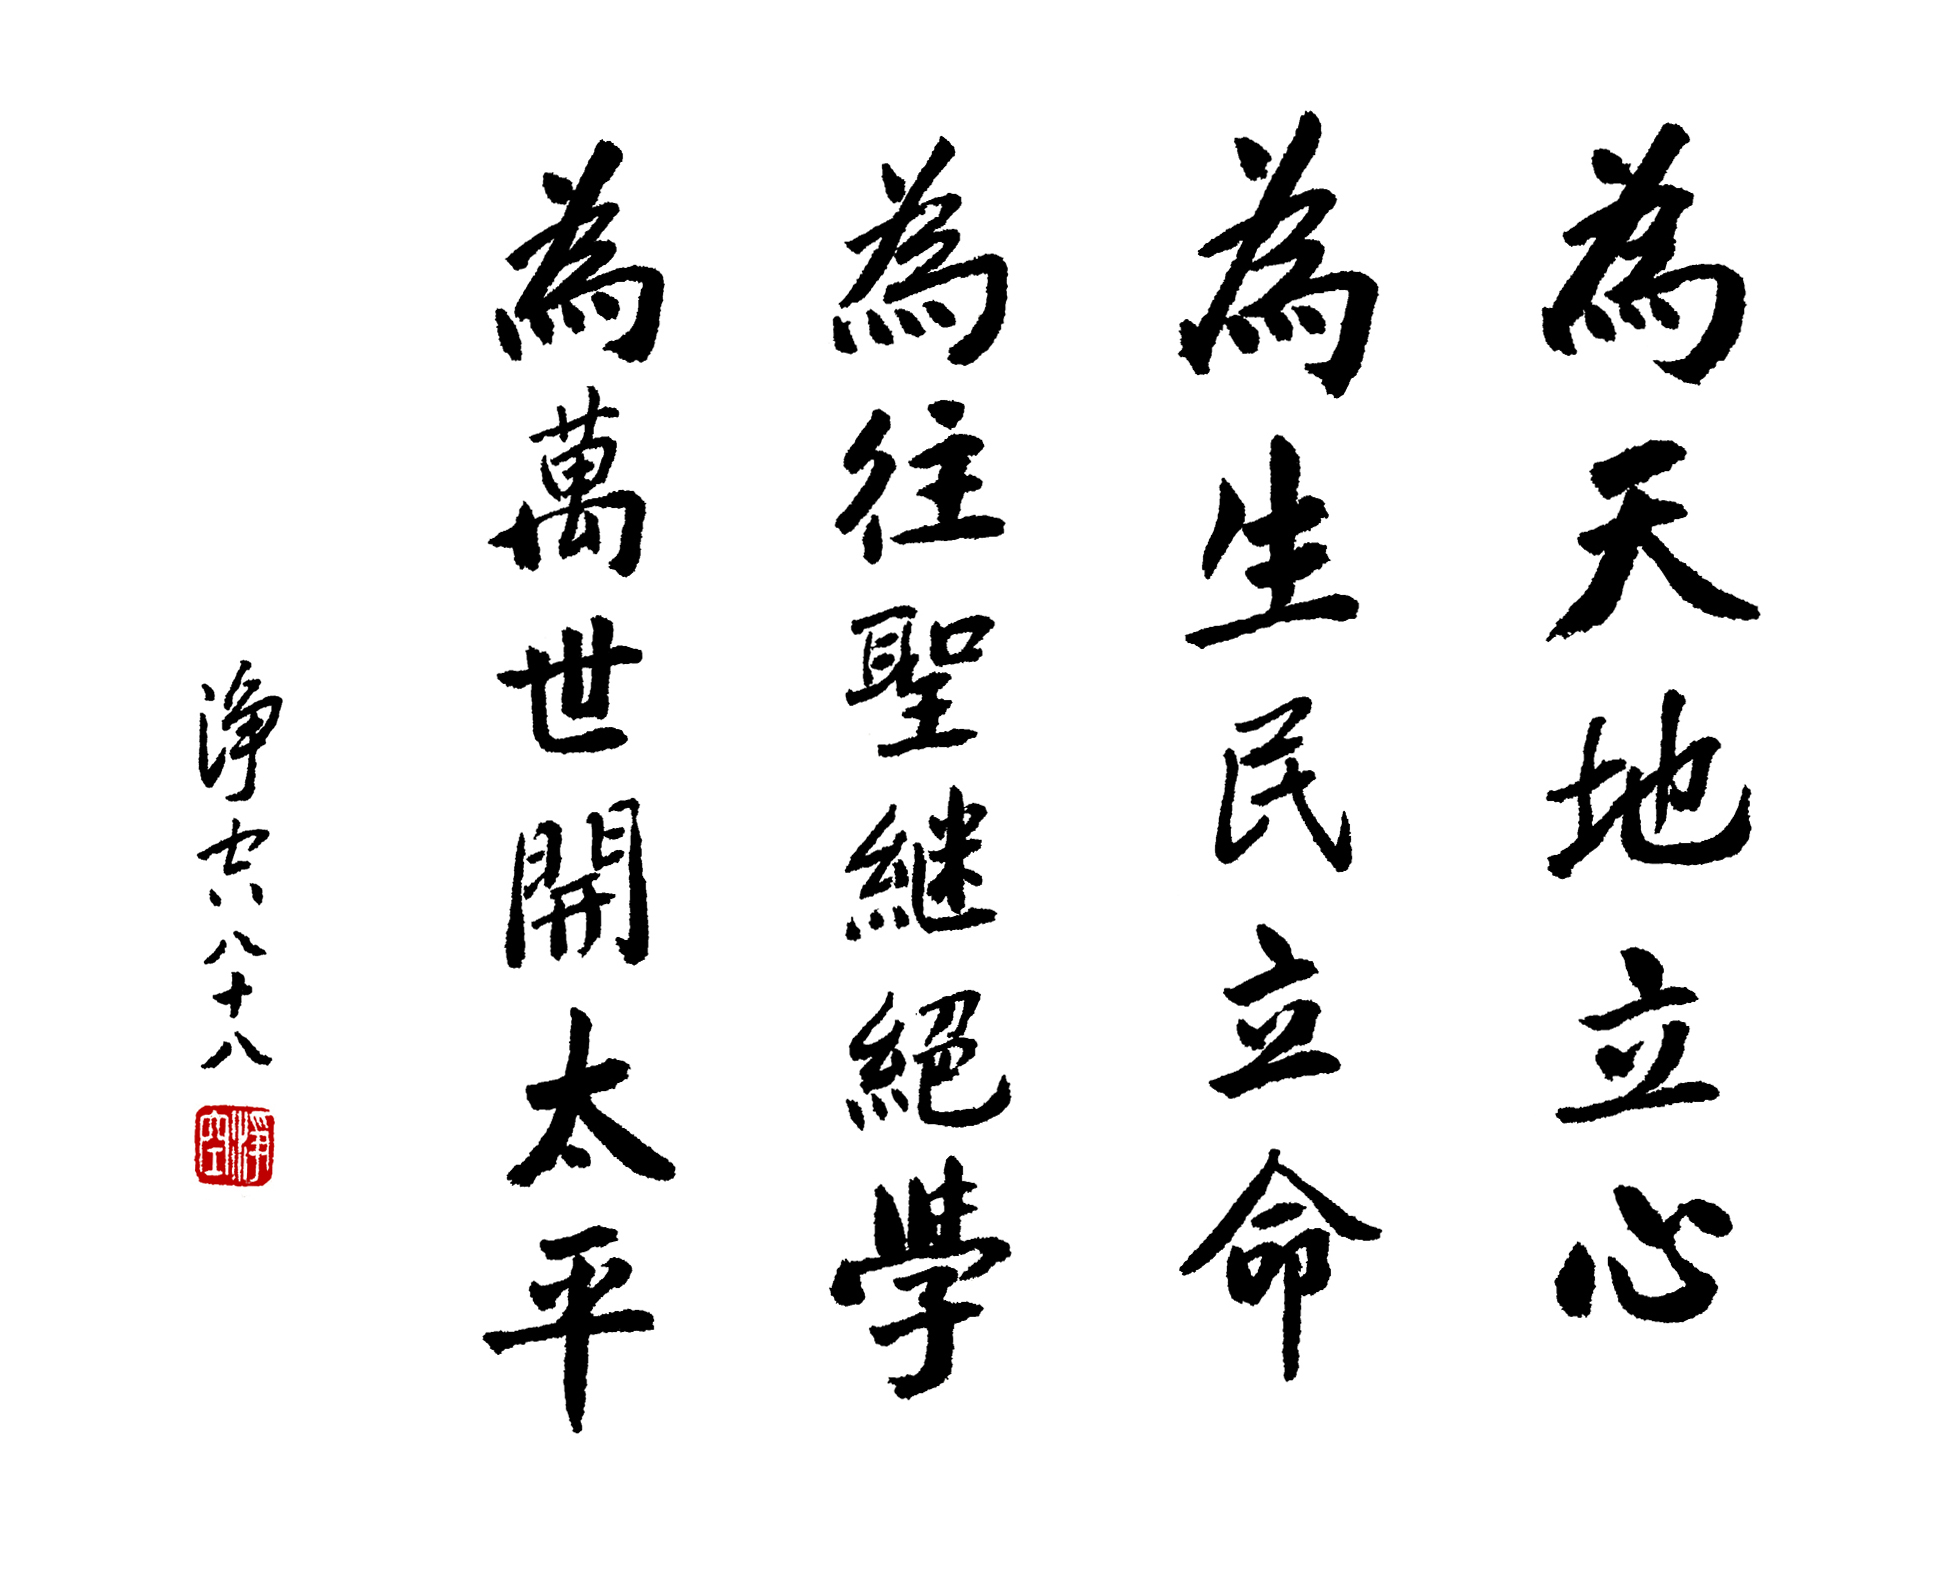 為天地立心
為生民立命
為往聖継絕學
為萬世開太平
淨空八十八
淨空